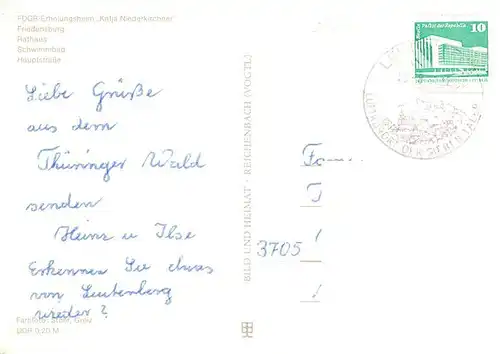 FDGB-Erholungsheim „Katja Niederkirchner"
Friedensburg
Rathaus
Schwimmbad
Hauptstraße
Liebe Grüße
aus dem
Thüringer Wald
senden
Heinz u Ilse
Erkennen Sie etwas
von Leutenberg
wieder?
Farbfoto: Stöhr, Greiz
DDR 0,20 M
BILD UND HEIMAT · REICHENBACH (VOGTL)
Fam
3705
10
Berlin, Palast der Republik
LUFTKURORT DER SIEBEN TÄLER